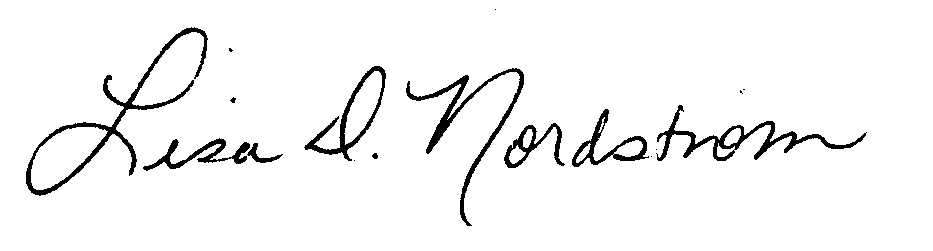 Lisa D. Nordstrom